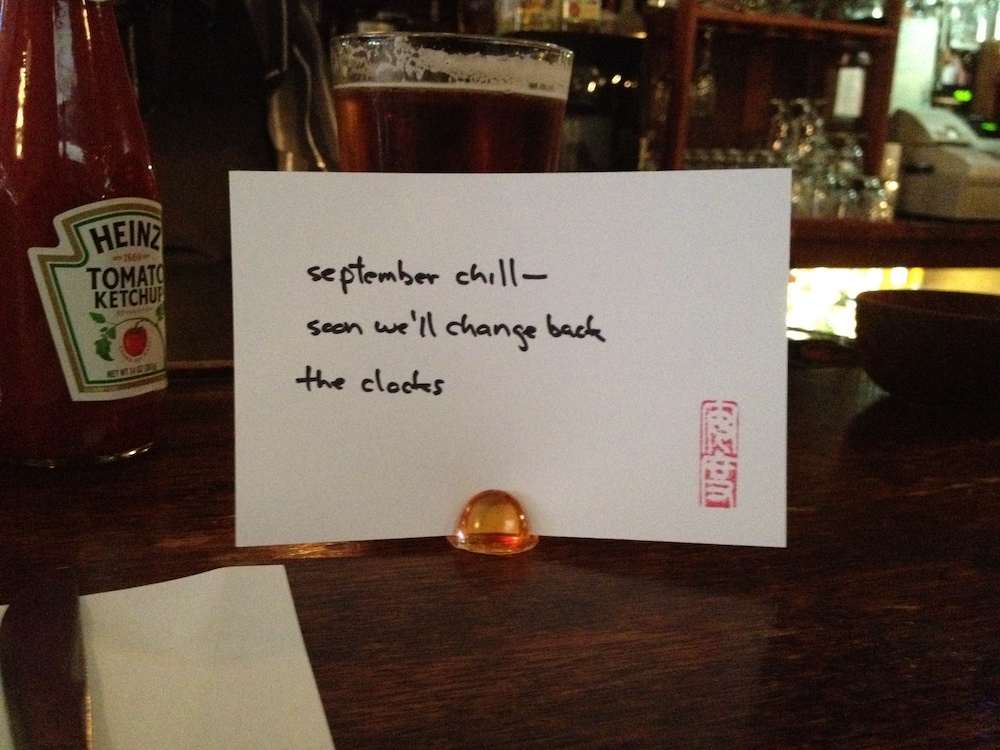 HEINZ
1869
TOMATO
KETCHUP
NET WT 14 OZ
september chill—
soon we'll change back
the clocks